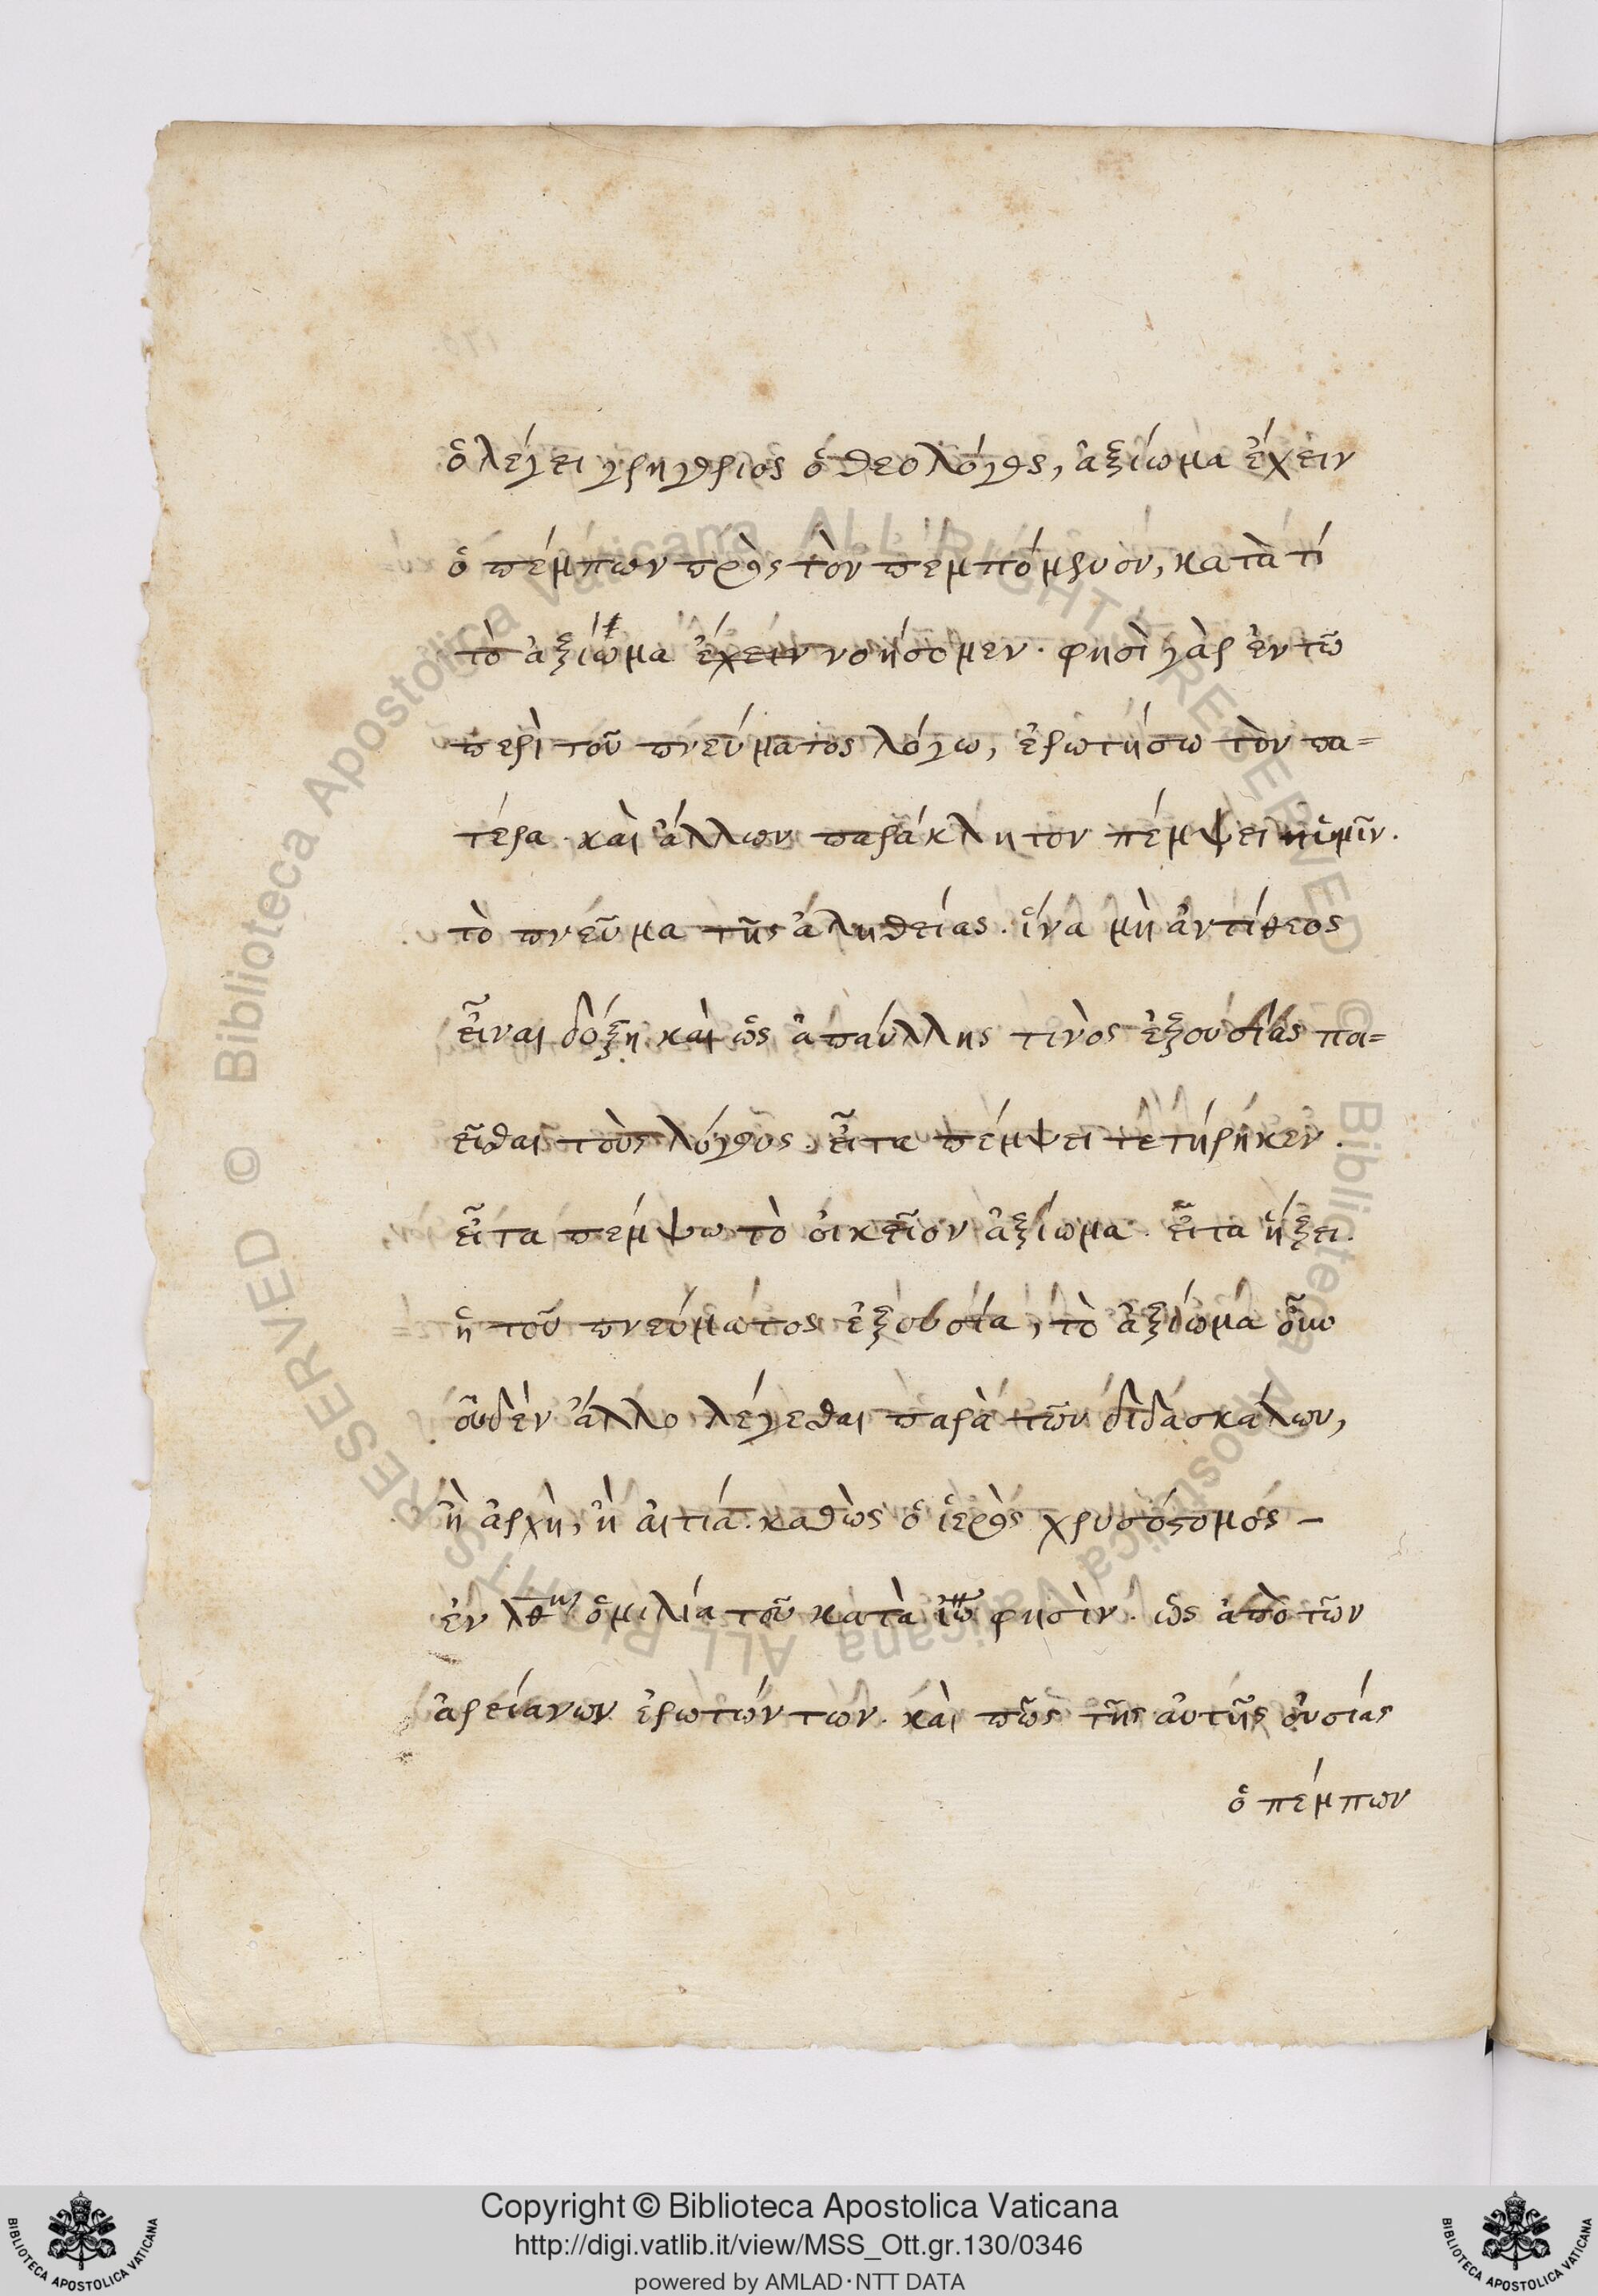 ὃ λέγει γρηγόριος ὁ θεολόγος, ἀξίωμα ἔχειν
ὁ πέμπων πρὸς τὸν πεμπόμενον, κατὰ τί
τὸ ἀξίωμα ἔχειν νοήσομεν· φησὶ γὰρ ἐν τῶ
περὶ τοῦ πνεύματος λόγω, ἐρωτήσω τὸν πα=
τέρα· καὶ ἄλλων παράκλητον πέμψει ὑμῖν.
τὸ πνεῦμα τῆς ἀληθείας. ἵνα μὴ ἀντίθεος
εἶναι δόξη καὶ ὡς ἀπ' ἄλλης τινὸς ἐξουσίας ποι=
εῖσθαι τοὺς λόγους. εἶτα πέμψει τετήρηκεν.
εἶτα πέμψω τὸ οἰκεῖον ἀξίωμα. εἶτα ἥξει.
ἡ τοῦ πνεύματος ἐξουσία, τὸ ἀξίωμα οὖν
οὐδὲν ἄλλο λέγεσθαι παρὰ τῶν διδασκάλων,
ἢ ἀρχὴ, ἢ αἰτία. καθὼς ὁ ἱερὸς χρυσόστομος –
ἐν λθη ὁμιλία τοῦ κατὰ ἰω φησὶν. ὡς ἀπὸ τῶν
ἀρείανων ἐρωτώντων. καὶ πῶς τῆς αὐτῆς οὐσίας
ὁ πέμπων
© Biblioteca Apostolica Vaticana ALL RIGHTS RESERVED
© Biblioteca Apostolica Vaticana ALL RIGHTS RESERVED
Copyright © Biblioteca Apostolica Vaticana
http://digi.vatlib.it/view/MSS_Ott.gr.130/0346
powered by AMLAD·NTT DATA
BIBLIOTECA APOSTOLICA VATICANA
BIBLIOTECA APOSTOLICA VATICANA